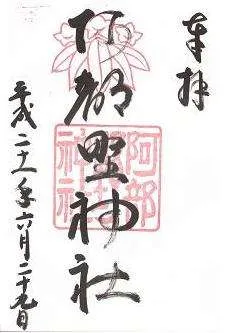 奉拝
阿部野神社
阿部野神社
平成二十一年六月二十九日